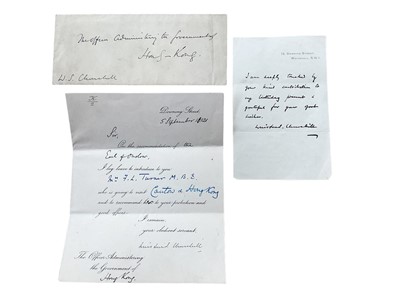 The Officer Administering the Government of
Hong-Kong.
W.S. Churchill
Downing Street
5 September
Sir,
On the recommendation of the
Earl of Onslow
I beg leave to introduce to you
F. L. Turner M.B.E.
who is going to visit Canton & Hong Kong
and to recommend her to your protection and
good Offices.
I remain
your obedient servant
Winston S. Churchill
The Officer Administering
the Government of
Hong Kong
I am deeply touched by
your kind contribution to
my birthday present &
grateful for your good
wishes.
Winston S. Churchill